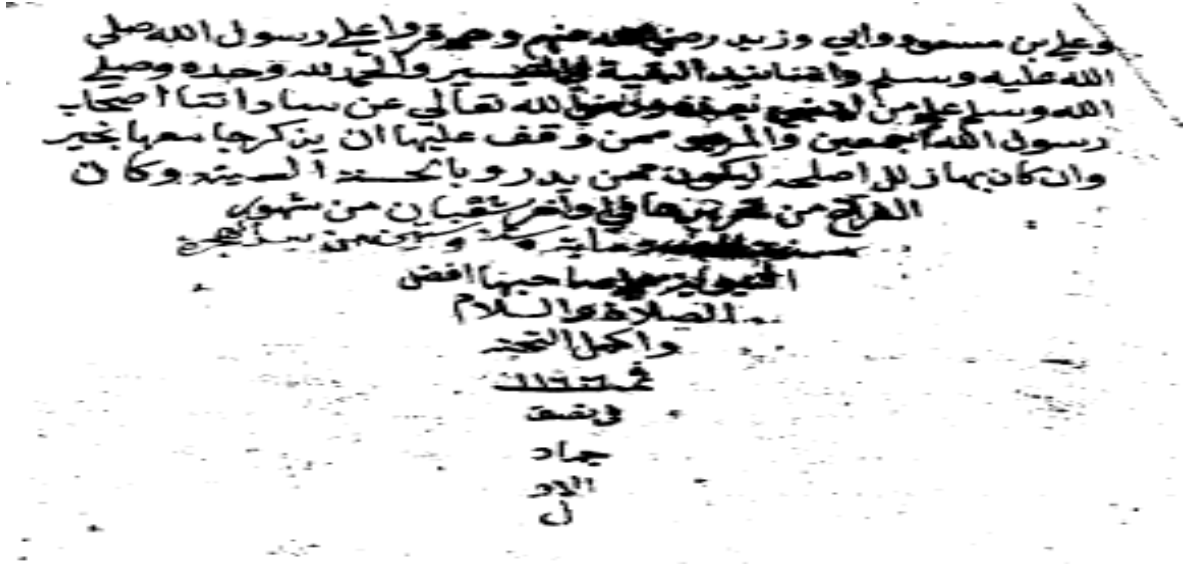 وعلي بن مسعود وابي وزيد رضي الله عنهم وهم قرواعلي رسول الله صلي
الله عليه وسلم واسانيد البقية في التيسير والحمد لله وحده وصلي
الله وسلم علي من لا نبي بعده ورضي الله تعالي عن ساداتنا اصحاب
رسول الله اجمعين والمرجو ممن وقف عليها ان يذكر جامعها بخير
وان كان بها زلل اصلحه ليكون ممن يدرو بالحسنة السيئة وكان
الفراغ من تحريرها في اواخر شعبان من شهور
سنة ومايه وستة وستين من الهجرة
النبوية علي صاحبها افضل
الصلاة والسلام
واكمل التحيه
في ١١٦٦
في نصف
جماد
الاو
ل